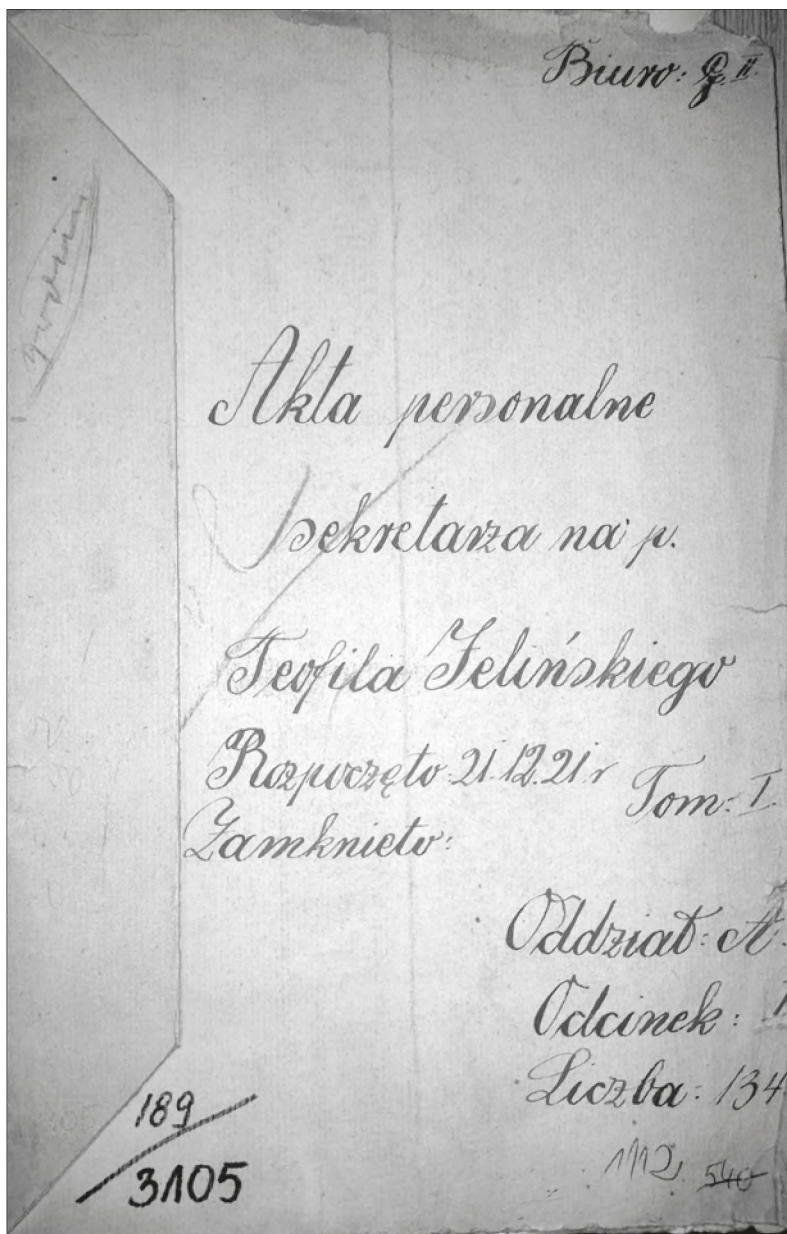 Biuro: II.
Akta personalne
sekretarza na p.
Teofila Jelińskiego
Rozpoczęto: 21.12.21 r
Tom: I.
Zamknieto:
Oddział: A.
Odcinek: I
Liczba: 134
189
3105
1112. 540